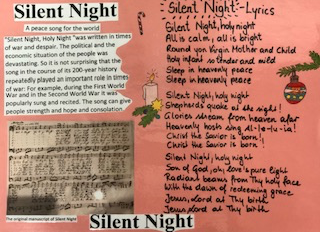 Silent Night
A peace song for the world
"Silent Night, Holy Night" was written in times
of war and despair. The political and the
economic situation of the people was
devastating. So it is not surprising that the
song in the course of its 200-year history
repeatedly played an important role in times
of war: For example, during the First World
War and in the Second World War it was
popularly sung and recited. The song can give
people strength and hope and consolation.
The original manuscript of Silent Night
Silent Night
Silent Night-Lyrics
Silent Night, holy night
All is calm, all is bright
Round yon Virgin Mother and Child
Holy infant so tender and mild
Sleep in heavenly peace
Sleep in heavenly peace
Silent Night, holy night
Shepherds quake at the sight!
Glories stream from heaven afar
Heavenly hosts sing Al-le-lu-ia!
Christ the Savior is born!
Christ the Savior is born!
Silent Night, holy night
Son of God, oh, love's pure light
Radiant beams from Thy holy face
With the dawn of redeeming grace
Jesus, Lord at Thy birth
Jesus, Lord at Thy birth